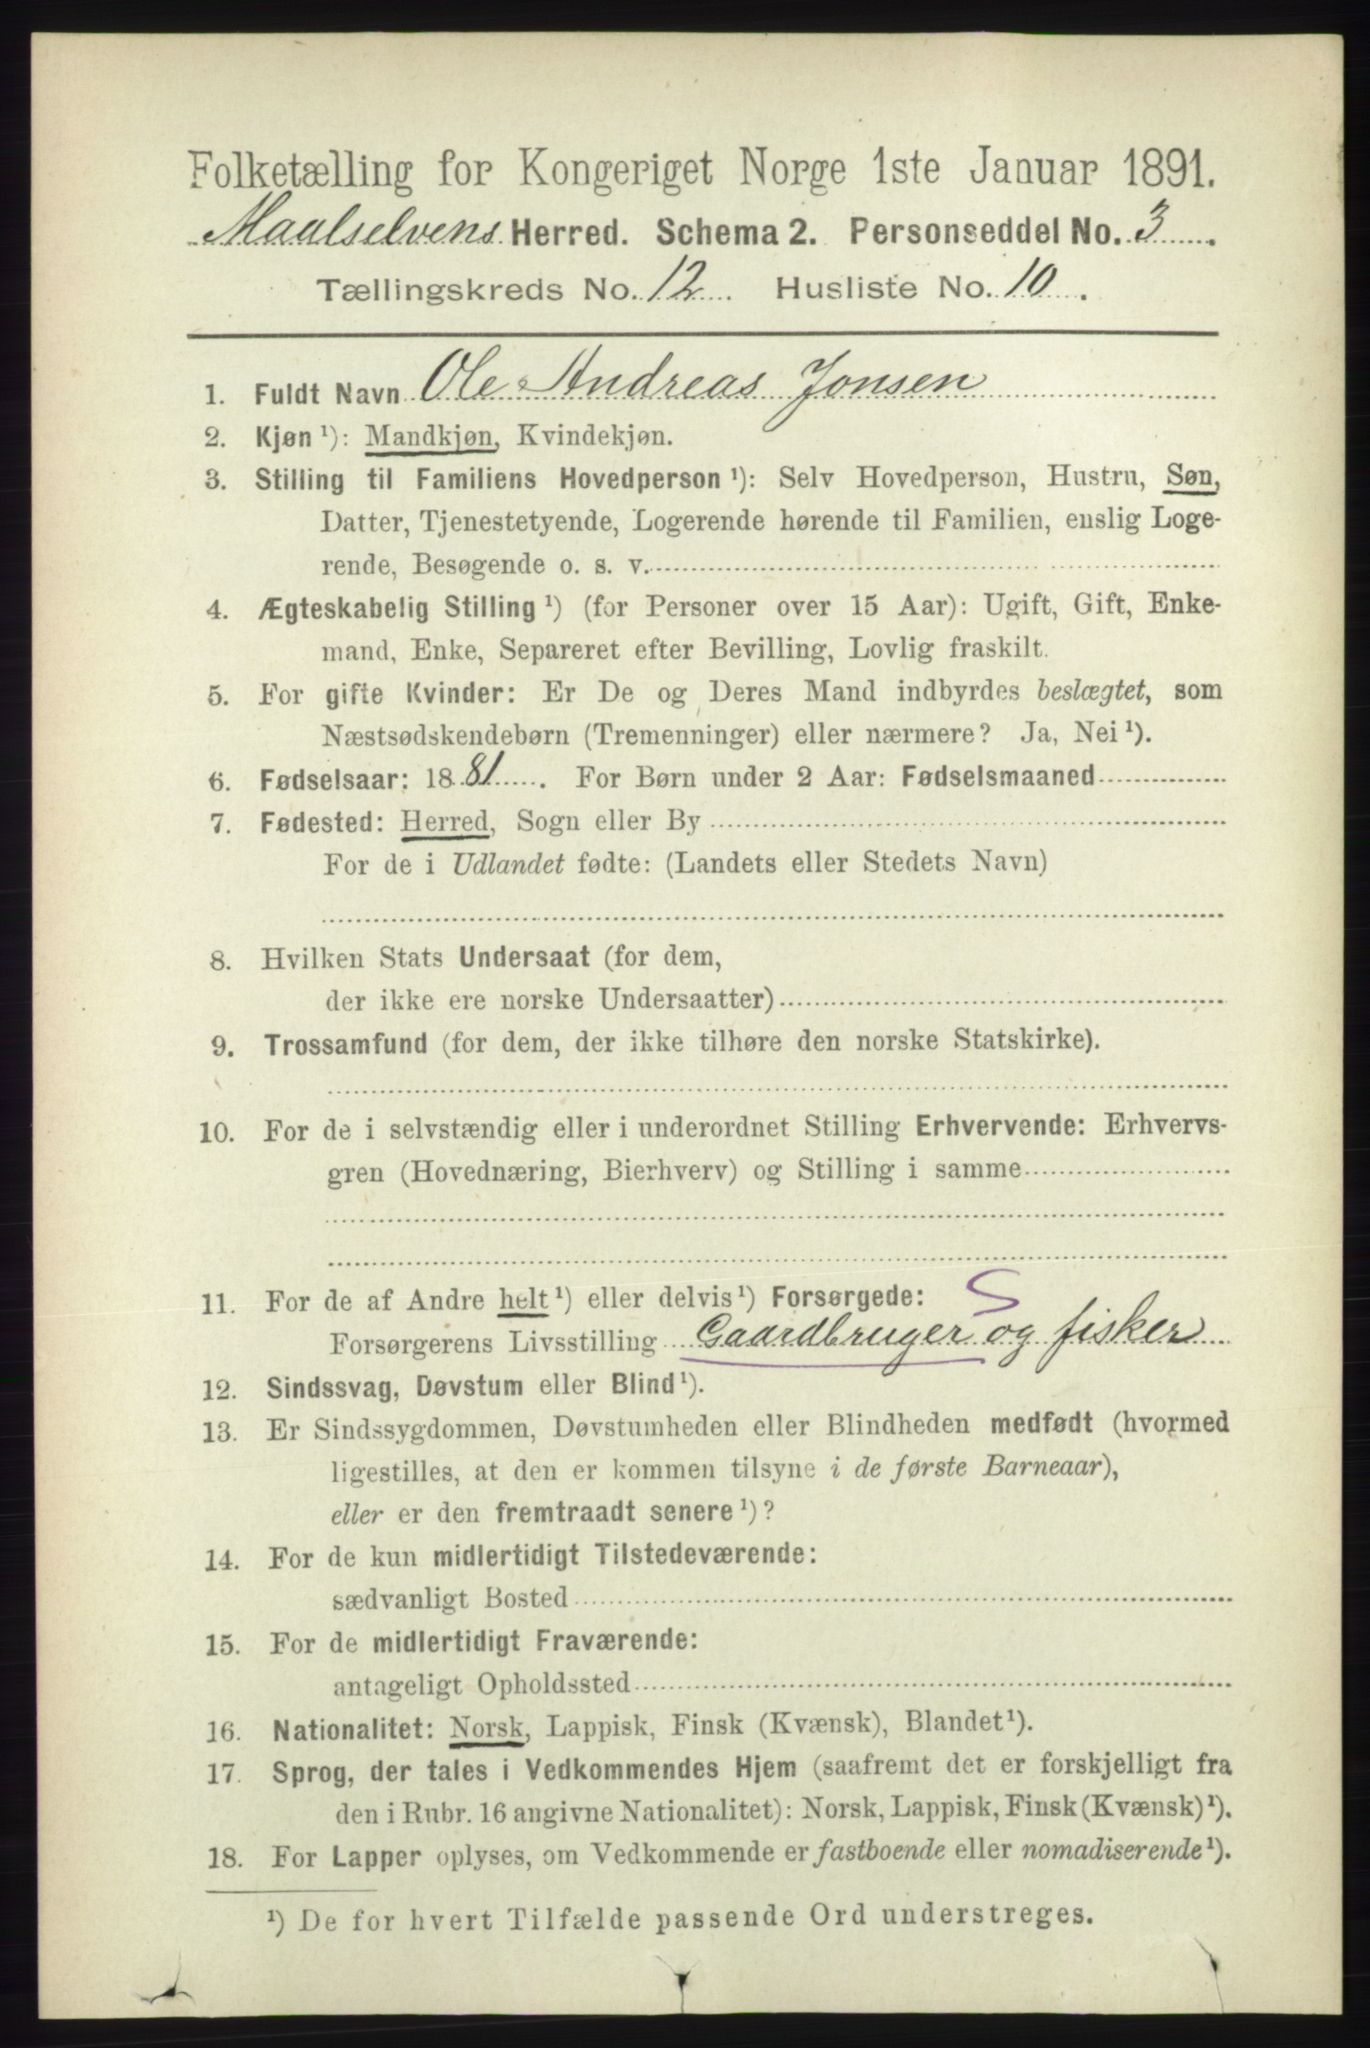 Folketælling for Kongeriget Norge 1ste Januar 1891.
Maalselvens Herred. Schema 2. Personseddel No. 3.
Tællingskreds No. 12. Husliste No. 10.
1. Fuldt Navn Ole Andreas Jonsen
2. Kjøn ¹): Mandkjøn, Kvindekjøn.
3. Stilling til Familiens Hovedperson ¹): Selv Hovedperson, Hustru, Søn,
Datter, Tjenestetyende, Logerende hørende til Familien, enslig Loge-
rende, Besøgende o. s. v.
4. Ægteskabelig Stilling ¹) (for Personer over 15 Aar): Ugift, Gift, Enke-
mand, Enke, Separeret efter Bevilling, Lovlig fraskilt.
5. For gifte Kvinder: Er De og Deres Mand indbyrdes beslægtet, som
Næstsødskendebørn (Tremenninger) eller nærmere? Ja, Nei ¹).
6. Fødselsaar: 1881. For Børn under 2 Aar: Fødselsmaaned
7. Fødested: Herred, Sogn eller By
For de i Udlandet fødte: (Landets eller Stedets Navn)
8. Hvilken Stats Undersaat (for dem,
der ikke ere norske Undersaatter)
9. Trossamfund (for dem, der ikke tilhøre den norske Statskirke).
10. For de i selvstændig eller i underordnet Stilling Erhvervende: Erhvervs-
gren (Hovednæring, Bierhverv) og Stilling i samme
11. For de af Andre helt ¹) eller delvis ¹) Forsørgede: S
Forsørgerens Livsstilling Gaardbruger og fisker
12. Sindssvag, Døvstum eller Blind ¹).
13. Er Sindssygdommen, Døvstumheden eller Blindheden medfødt (hvormed
ligestilles, at den er kommen tilsyne i de første Barneaar),
eller er den fremtraadt senere ¹)?
14. For de kun midlertidigt Tilstedeværende:
sædvanligt Bosted
15. For de midlertidigt Fraværende:
antageligt Opholdssted
16. Nationalitet: Norsk, Lappisk, Finsk (Kvænsk), Blandet ¹).
17. Sprog, der tales i Vedkommendes Hjem (saafremt det er forskjelligt fra
den i Rubr. 16 angivne Nationalitet): Norsk, Lappisk, Finsk (Kvænsk) ¹).
18. For Lapper oplyses, om Vedkommende er fastboende eller nomadiserende ¹).
¹) De for hvert Tilfælde passende Ord understreges.